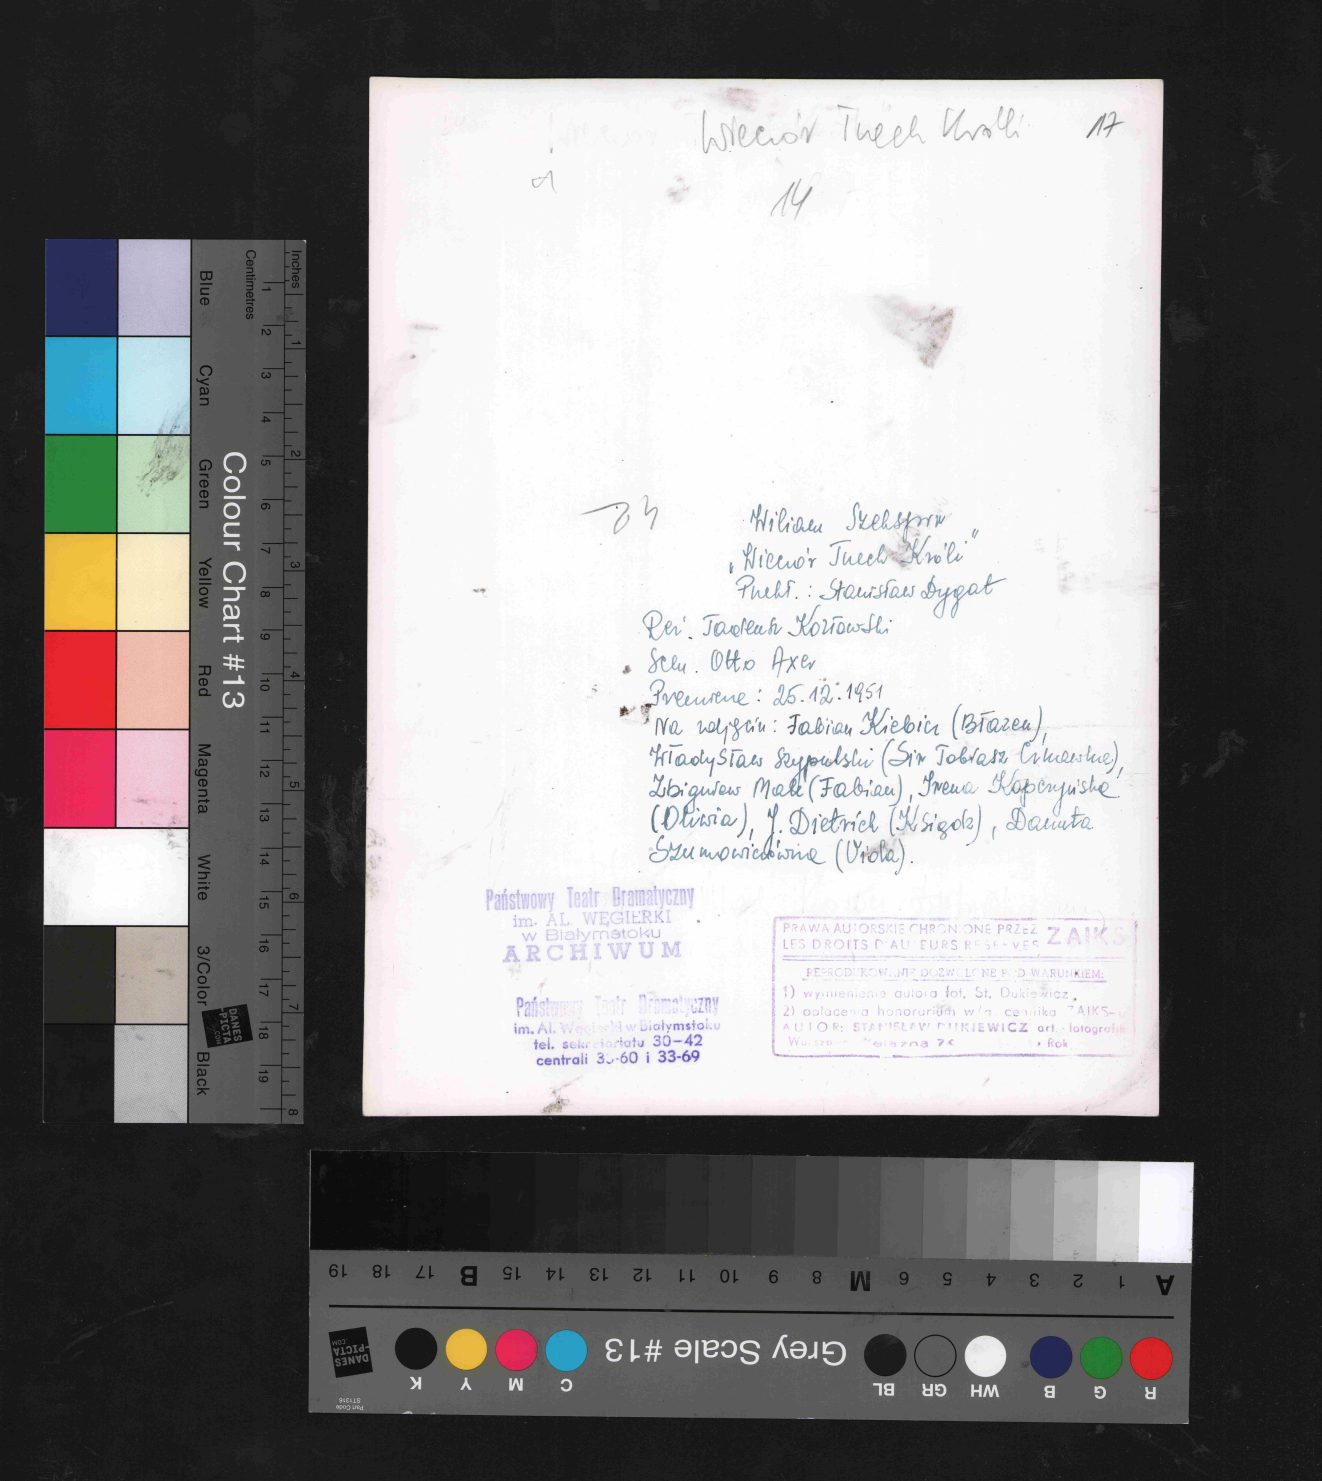 Wieczór Trzech Króli 17
14
24
Wiliam Szekspir
„Wieczór Trzech Króli"
Przekł.: Stanisław Dygat
Reż. Tadeusz Kozłowski
Scen. Otto Axer
Premiera: 25.12.1951
Na zdjęciu: Fabian Kiebicz (Błazen),
Władysław Szypulski (Sir Tobiasz Czkawka),
Zbigniew Mak (Fabian), Irena Kopczyńska
(Oliwia), J. Dietrich (Ksiądz), Danuta
Szumowiczówna (Viola).
Państwowy Teatr Dramatyczny
im. AL. WĘGIERKI
w Białymstoku
ARCHIWUM
Państwowy Teatr Dramatyczny
im. Al. Węgierki w Białymstoku
tel. sekretariatu 30-42
centrali 33-60 i 33-69
PRAWA AUTORSKIE CHRONIONE PRZEZ ZAIKS
LES DROITS D'AUTEURS RESERVES
REPRODUKOWANIE DOZWOLONE POD WARUNKIEM:
1) wymienienia autora fot. St. Dukiewicz,
2) opłacenia honorarium wg. cennika ZAIKS-u
AUTOR: STANISŁAW DUKIEWICZ art. fotografik
Warszawa Żelazna Rok
Blue
Cyan
Green
Yellow
Red
Magenta
White
3/Color
Black
Colour Chart #13
Centimetres
1 2 3 4 5 6 7 8 9 10 11 12 13 14 15 16 17 18 19
Inches
1 2 3 4 5 6 7 8
DANES
-PICTA
.COM
A 1 2 3 4 5 6 M 8 9 10 11 12 13 14 15 B 17 18 19
R G B WH GR BL Grey Scale #13 C M Y K
DANES
-PICTA
.COM
Part Code
ST1316